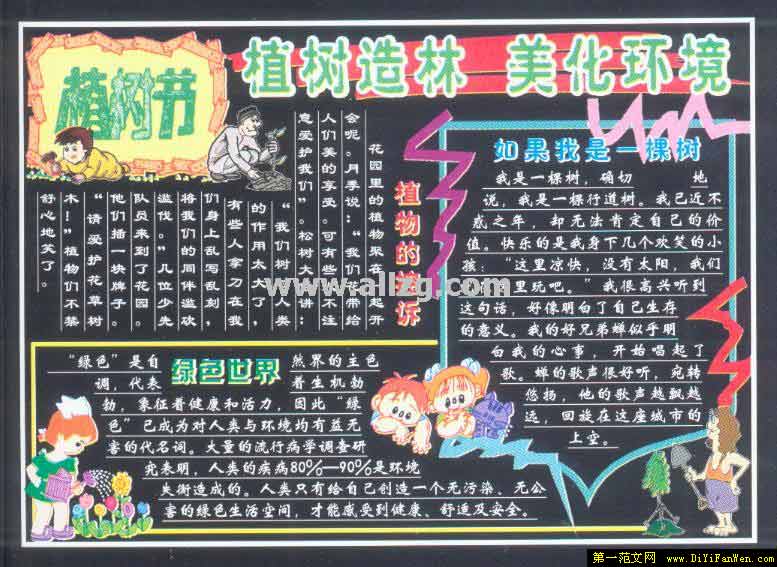 植树节
植树造林 美化环境
植物的 诉
花园里的植物聚在 起开
会呢。月季说：“我们带给
人们美的享受。可有些 不注
意爱护我们”。松树大 讲：
“我们树 人类
的作用太大了，
有些人拿刀在我
们身上乱写乱刻，
将我们的同伴滥砍
滥伐。”几位少先
队员来到了花园。
他们插一块牌子。
“请爱护花草树
木！”植物们不禁
舒心地笑了。
如果我是一棵树
我是一棵树，确切 地
说，我是一棵行道树。我已近不
惑之年，却无法肯定自己的价
值。快乐的是我身下几个欢笑的小
孩：“这里凉快，没有太阳，我们
里玩吧。”我很高兴听到
这句话，好像明白了自己生存
的意义。我的好兄弟蝉似乎明
白我的心事，开始唱起了
歌。蝉的歌声很好听，宛转
悠扬，他的歌声越飘越
远，回旋在这座城市的
上空。
绿色世界
“绿色”是自 然界的主色
调，代表 着生机勃
勃，象征着健康和活力，因此“绿
色”已成为对人类与环境均有益无
害的代名词。大量的流行病学调查研
究表明，人类的疾病80%—90%是环境
失衡造成的。人类只有给自己创造一个无污染、无公
害的绿色生活空间，才能感受到健康、舒适及安全。
www.allzg.com
第一范文网 www.DiYiFanWen.com